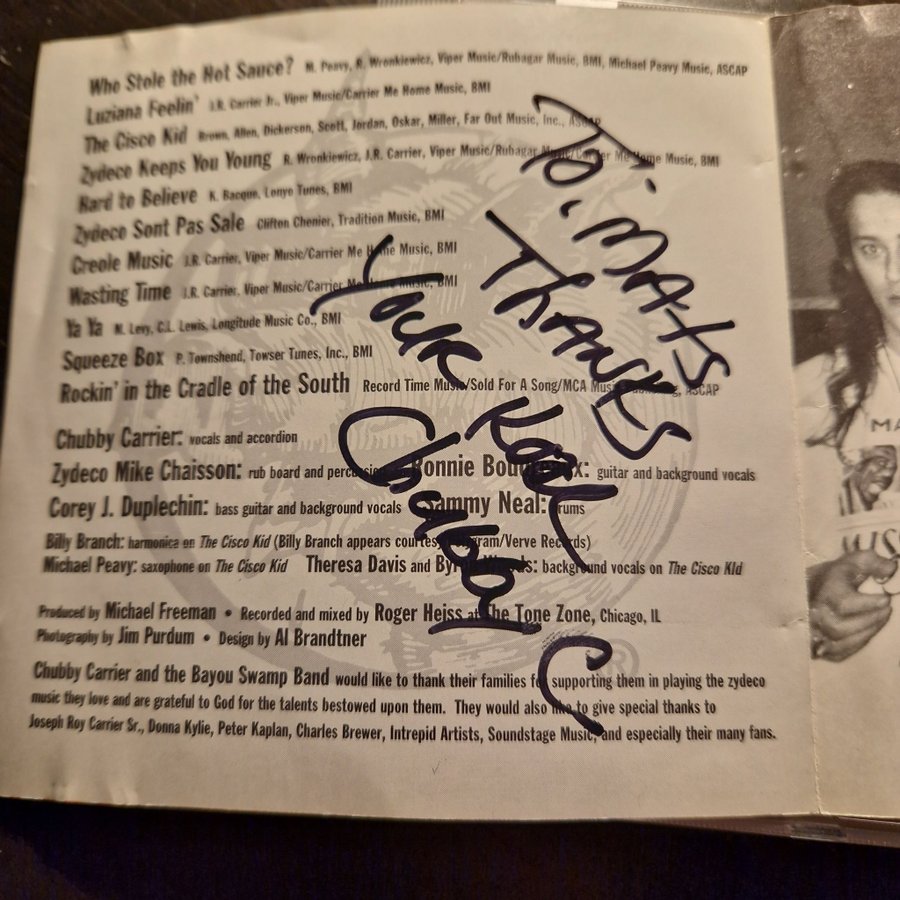 Who Stole the Hot Sauce? M. Peavy, R. Wronkiewicz, Viper Music/Rubagar Music, BMI, Michael Peavy Music, ASCAP
Luziana Feelin' J.R. Carrier Jr., Viper Music/Carrier Me Home Music, BMI
The Cisco Kid Brown, Allen, Dickerson, Scott, Jordan, Oskar, Miller, Far Out Music, Inc., ASCAP
Zydeco Keeps You Young R. Wronkiewicz, J.R. Carrier, Viper Music/Rubagar Music/Carrier Me Home Music, BMI
Hard to Believe K. Bacque, Lonyo Tunes, BMI
Zydeco Sont Pas Sale Clifton Chenier, Tradition Music, BMI
Creole Music J.R. Carrier, Viper Music/Carrier Me Home Music, BMI
Wasting Time J.R. Carrier, Viper Music/Carrier Me Home Music, BMI
Ya Ya M. Levy, C.L. Lewis, Longitude Music Co., BMI
Squeeze Box P. Townshend, Towser Tunes, Inc., BMI
Rockin' in the Cradle of the South Record Time Music/Sold For A Song/MCA Music Publishing, ASCAP
Chubby Carrier: vocals and accordion
Zydeco Mike Chaisson: rub board and percussion Ronnie Boudreaux: guitar and background vocals
Corey J. Duplechin: bass guitar and background vocals Sammy Neal: drums
Billy Branch: harmonica on The Cisco Kid (Billy Branch appears courtesy Polygram/Verve Records)
Michael Peavy: saxophone on The Cisco Kid Theresa Davis and Byron Woods: background vocals on The Cisco KId
Produced by Michael Freeman • Recorded and mixed by Roger Heiss at The Tone Zone, Chicago, IL
Photography by Jim Purdum • Design by Al Brandtner
Chubby Carrier and the Bayou Swamp Band would like to thank their families for supporting them in playing the zydeco
music they love and are grateful to God for the talents bestowed upon them. They would also like to give special thanks to
Joseph Roy Carrier Sr., Donna Kylie, Peter Kaplan, Charles Brewer, Intrepid Artists, Soundstage Music, and especially their many fans.
To: MATS
THANKS
Your Kool
Chubby C
MA
MISS